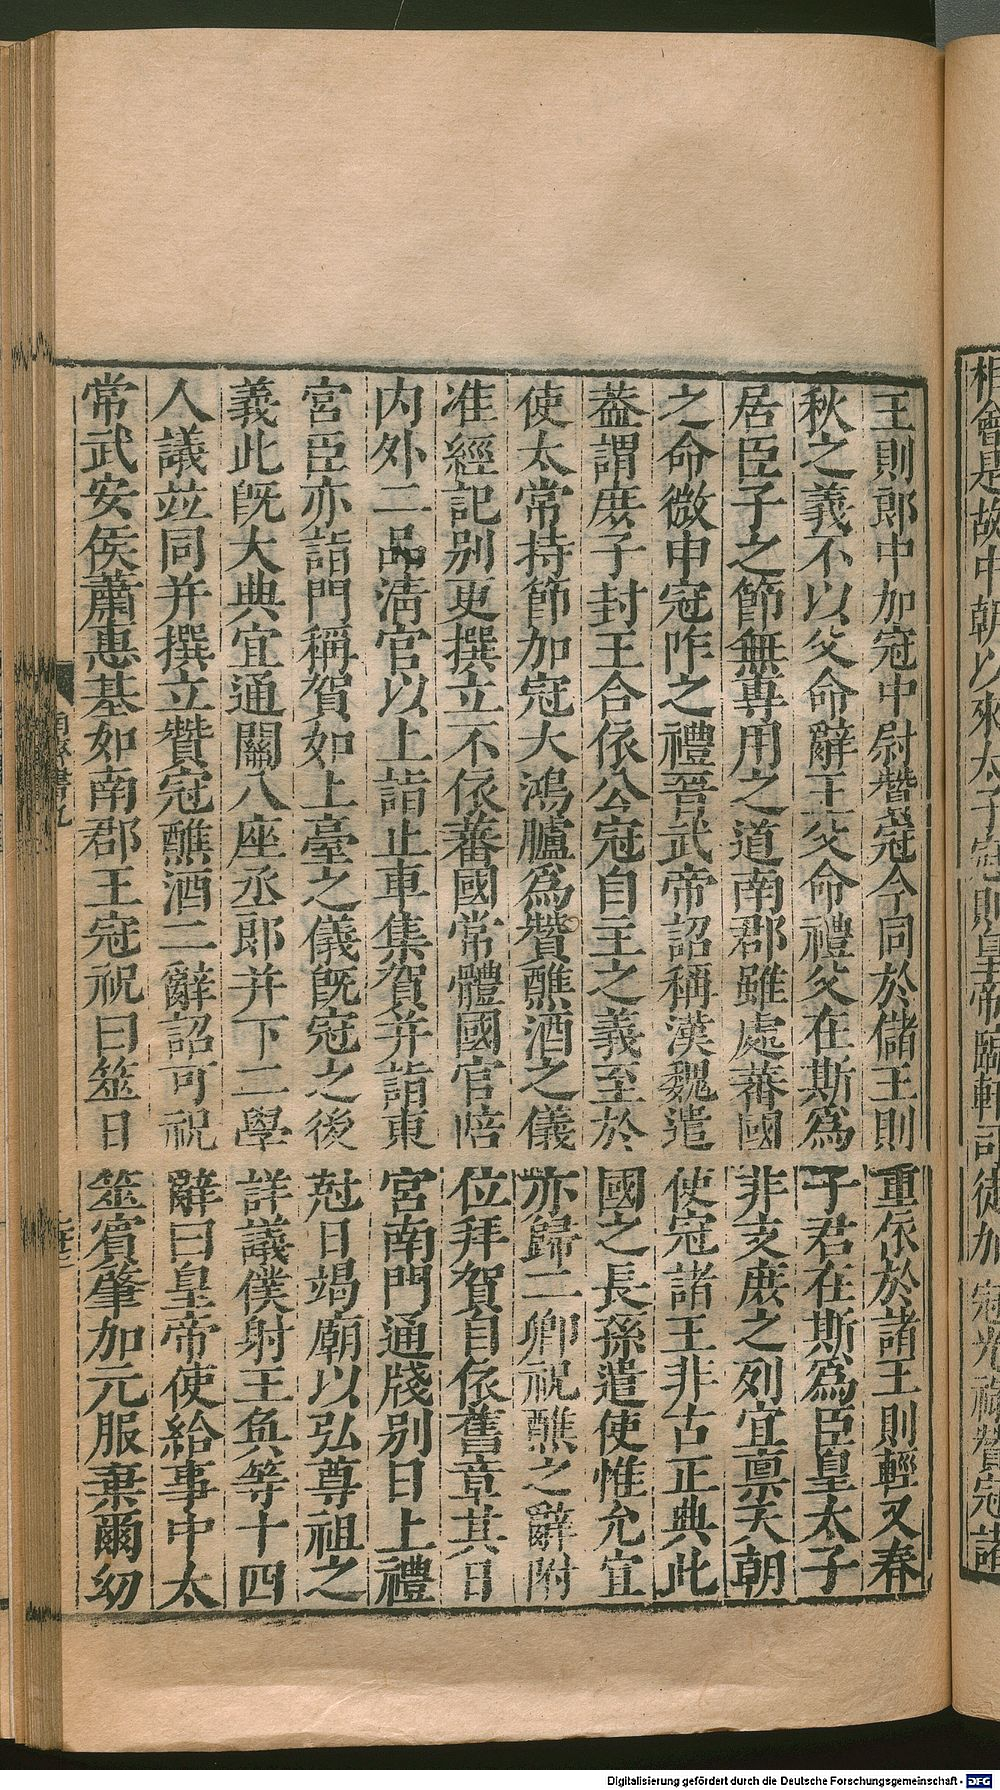 相會是故中朝以來太子冠則皇帝臨軒司徒加冠光祿贊冠諸
王則郎中加冠中尉贊冠今同於儲王則重依於諸王則輕又春
秋之義不以父命辭王父命禮父在斯為子君在斯為臣皇太子
居臣子之節無專用之道南郡雖處蕃國非支庶之列宜稟天朝
之命微申冠阼之禮晉武帝詔稱漢魏遣使冠諸王非古正典此
蓋謂庶子封王合依公冠自主之義至於國之長孫遣使惟允宜
使太常持節加冠大鴻臚為贊醮酒之儀亦歸二卿祝醮之辭附
准經記別更撰立不依蕃國常體國官陪位拜賀自依舊章其日
內外二品清官以上詣止車集賀并詣東宮南門通牋別日上禮
宮臣亦詣門稱賀如上臺之儀既冠之後尅日謁廟以弘尊祖之
義此既大典宜通關八座丞郎并下二學詳議僕射王奐等十四
人議並同并撰立贊冠醮酒二辭詔可祝辭曰皇帝使給事中太
常武安侯蕭惠基如南郡王冠祝曰筮日筮賓肇加元服棄爾幼
南齊書九
Digitalisierung gefördert durch die Deutsche Forschungsgemeinschaft - DFG